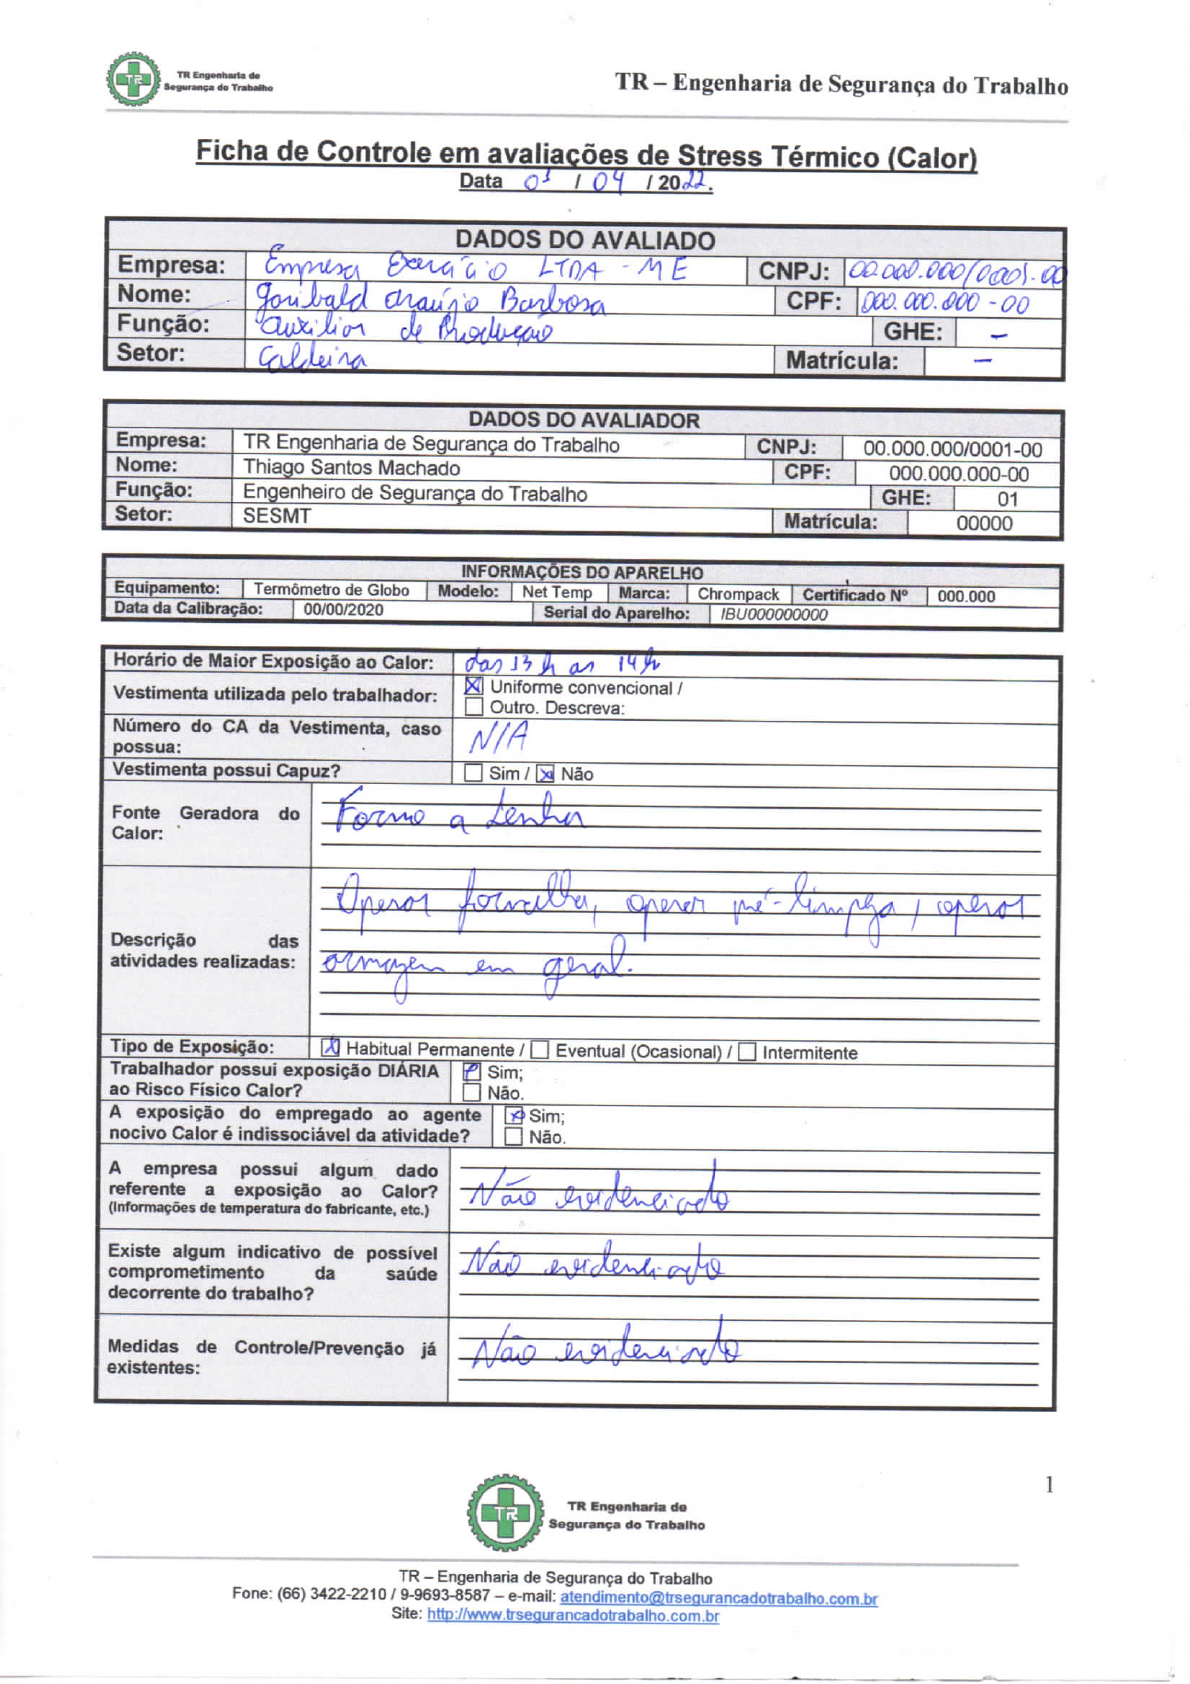 TR Engenharia de
Segurança do Trabalho
TR – Engenharia de Segurança do Trabalho
Ficha de Controle em avaliações de Stress Térmico (Calor)
Data 01 / 04 / 2022.
DADOS DO AVALIADO
Empresa: Empresa Exercício LTDA - ME CNPJ: 00.000.000/0001-00
Nome: Garibald Araújo Barbosa CPF: 000.000.000-00
Função: Auxiliar de Produção GHE: –
Setor: Caldeira Matrícula: –
DADOS DO AVALIADOR
Empresa: TR Engenharia de Segurança do Trabalho CNPJ: 00.000.000/0001-00
Nome: Thiago Santos Machado CPF: 000.000.000-00
Função: Engenheiro de Segurança do Trabalho GHE: 01
Setor: SESMT Matrícula: 00000
INFORMAÇÕES DO APARELHO
Equipamento: Termômetro de Globo Modelo: Net Temp Marca: Chrompack Certificado Nº 000.000
Data da Calibração: 00/00/2020 Serial do Aparelho: IBU000000000
Horário de Maior Exposição ao Calor: das 13 h as 14 h
Vestimenta utilizada pelo trabalhador: ☒ Uniforme convencional /
☐ Outro. Descreva:
Número do CA da Vestimenta, caso
possua: N/A
Vestimenta possui Capuz? ☐ Sim / ☒ Não
Fonte Geradora do
Calor: Forno a Lenha
Operar fornalha, operar pré-limpeza, operar
Descrição das
atividades realizadas: armazem em geral.
Tipo de Exposição: ☒ Habitual Permanente / ☐ Eventual (Ocasional) / ☐ Intermitente
Trabalhador possui exposição DIÁRIA ☒ Sim;
ao Risco Físico Calor? ☐ Não.
A exposição do empregado ao agente ☒ Sim;
nocivo Calor é indissociável da atividade? ☐ Não.
A empresa possui algum dado
referente a exposição ao Calor? Não evidenciado
(Informações de temperatura do fabricante, etc.)
Existe algum indicativo de possível
comprometimento da saúde Não evidenciado
decorrente do trabalho?
Medidas de Controle/Prevenção já Não evidenciado
existentes:
1
TR Engenharia de
Segurança do Trabalho
TR – Engenharia de Segurança do Trabalho
Fone: (66) 3422-2210 / 9-9693-8587 – e-mail: atendimento@trsegurancadotrabalho.com.br
Site: http://www.trsegurancadotrabalho.com.br